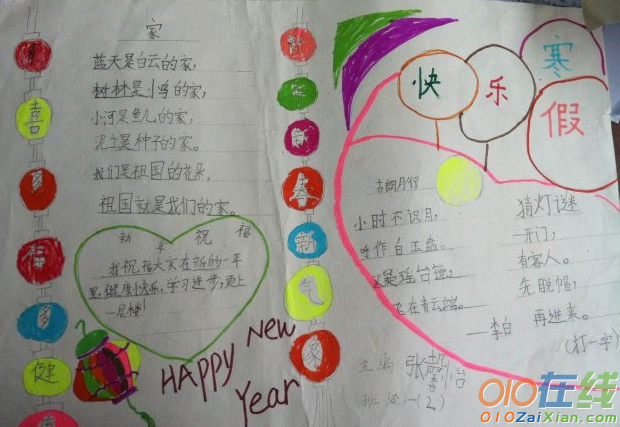 家
蓝天是白云的家,
树林是小鸟的家,
小河是鱼儿的家,
泥土是种子的家。
我们是祖国的花朵,
祖国就是我们的家。
喜
福
多
健
康
新年祝福
我祝福大家在新的一年
里,健康快乐,学习进步,更上
一层楼!
HAPPY New
Year
新
年
新
春
新
气
象
快乐寒假
古朗月行
小时不识月,
呼作白玉盘。
又疑瑶台镜,
飞在青云端。
——李白
猜灯谜
一开门,
有客人。
先脱帽,
再进来。
(打一字)
主编 张
班级 (2)
010在线
010ZaiXian.com